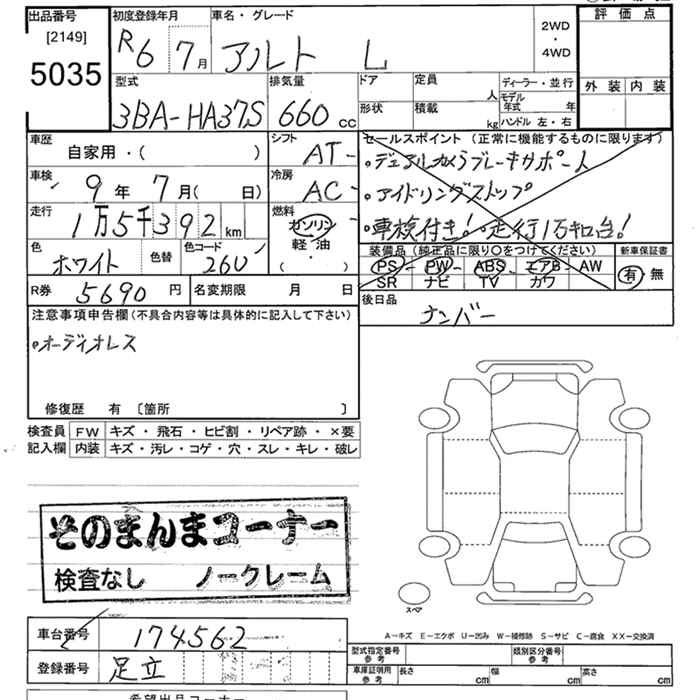 出品番号
[2149]
5035
初度登録年月
R6 7月
車名・グレード
アルト L
2WD
・
4WD
評価点
外装 内装
型式
3BA-HA37S
排気量
660 cc
ドア
形状
定員 人
積載 kg
ディーラー・並行
モデル年式 年
ハンドル 左・右
車歴
自家用・( )
シフト
AT-
セールスポイント(正常に機能するものに限ります)
・デュアルカメラブレーキサポート
・アイドリングストップ
・車検付き!・走行1万キロ台!
車検
9年 7月( 日)
冷房
AC-
走行
1万5千392 km
燃料
ガソリン
軽油
( )
色
ホワイト
色替
色コード
26U
装備品(純正品に限り○をつけてください)
PS-PW-ABS-エアB-AW
SR ナビ TV カワ
新車保証書
有・無
R券 5690円
名変期限 月 日
後日品
ナンバー
注意事項申告欄(不具合内容等は具体的に記入して下さい)
・オーディオレス
修復歴 有 〔箇所 〕
検査員記入欄
FW キズ・飛石・ヒビ割・リペア跡・×要
内装 キズ・汚レ・コゲ・穴・スレ・キレ・破レ
そのまんまコーナー
検査なし ノークレーム
スペア
A-キズ E-エクボ U-凹み W-補修跡 S-サビ C-腐食 XX-交換済
車台番号 174562
登録番号 足立
型式指定番号
参考
類別区分番号
参考
車庫証明用
参考
長さ cm 幅 cm 高さ cm
希望出品コーナー